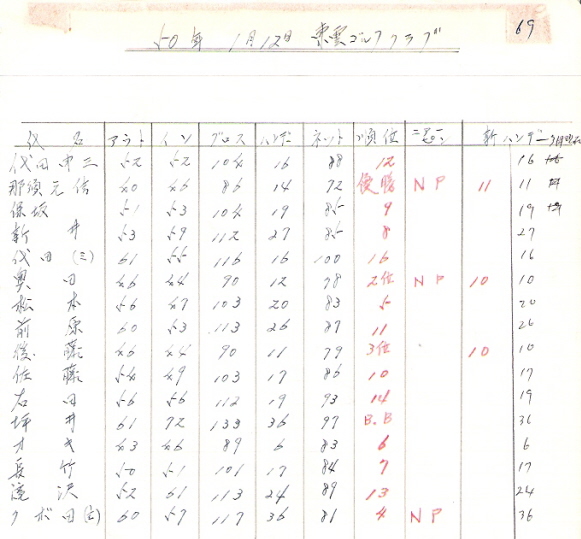 50年 1月12日 東雲ゴルフクラブ 69
氏名 アウト イン グロス ハンデー ネット 順位 新ハンデー
代田中三 52 52 104 16 88 12 16
那須元信 40 46 86 14 72 優勝 NP 11 11
保坂 51 53 104 19 85 9 19
新井 53 59 112 27 85 8 27
代田(三) 61 55 116 16 100 16 16
奥田 46 44 90 12 78 2位 NP 10 10
松本 56 47 103 20 83 5 20
前原 60 53 113 26 87 11 26
後藤 46 44 90 11 79 3位 10 10
佐藤 54 49 103 17 86 10 17
右田 56 56 112 19 93 14 19
坪井 61 72 133 36 97 B.B 36
オキ 43 46 89 6 83 6 6
長竹 50 51 101 17 84 7 17
滝沢 52 61 113 24 89 13 24
クボ田 60 57 117 36 81 4 NP 36